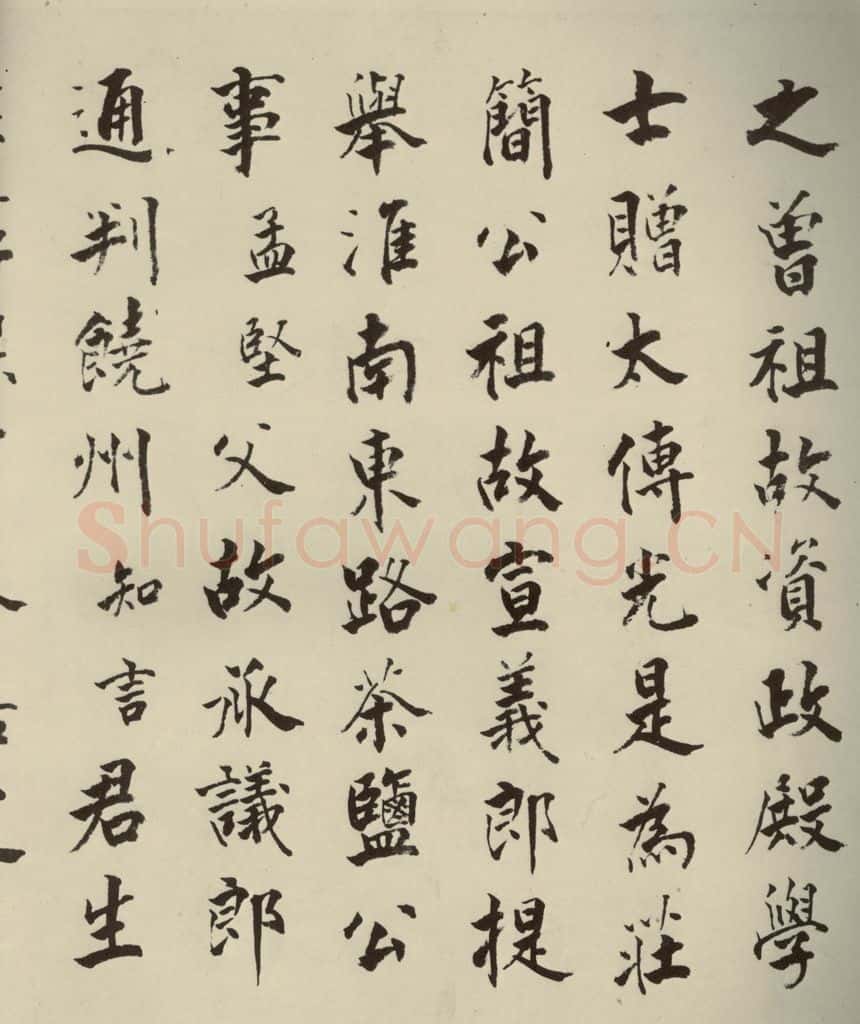 之曽祖故資政殿學
士贈太傅光是為莊
簡公祖故宣義郎提
舉淮南東路茶鹽公
事孟堅父故承議郎
通判饒州知言君生
Shufawang.CN